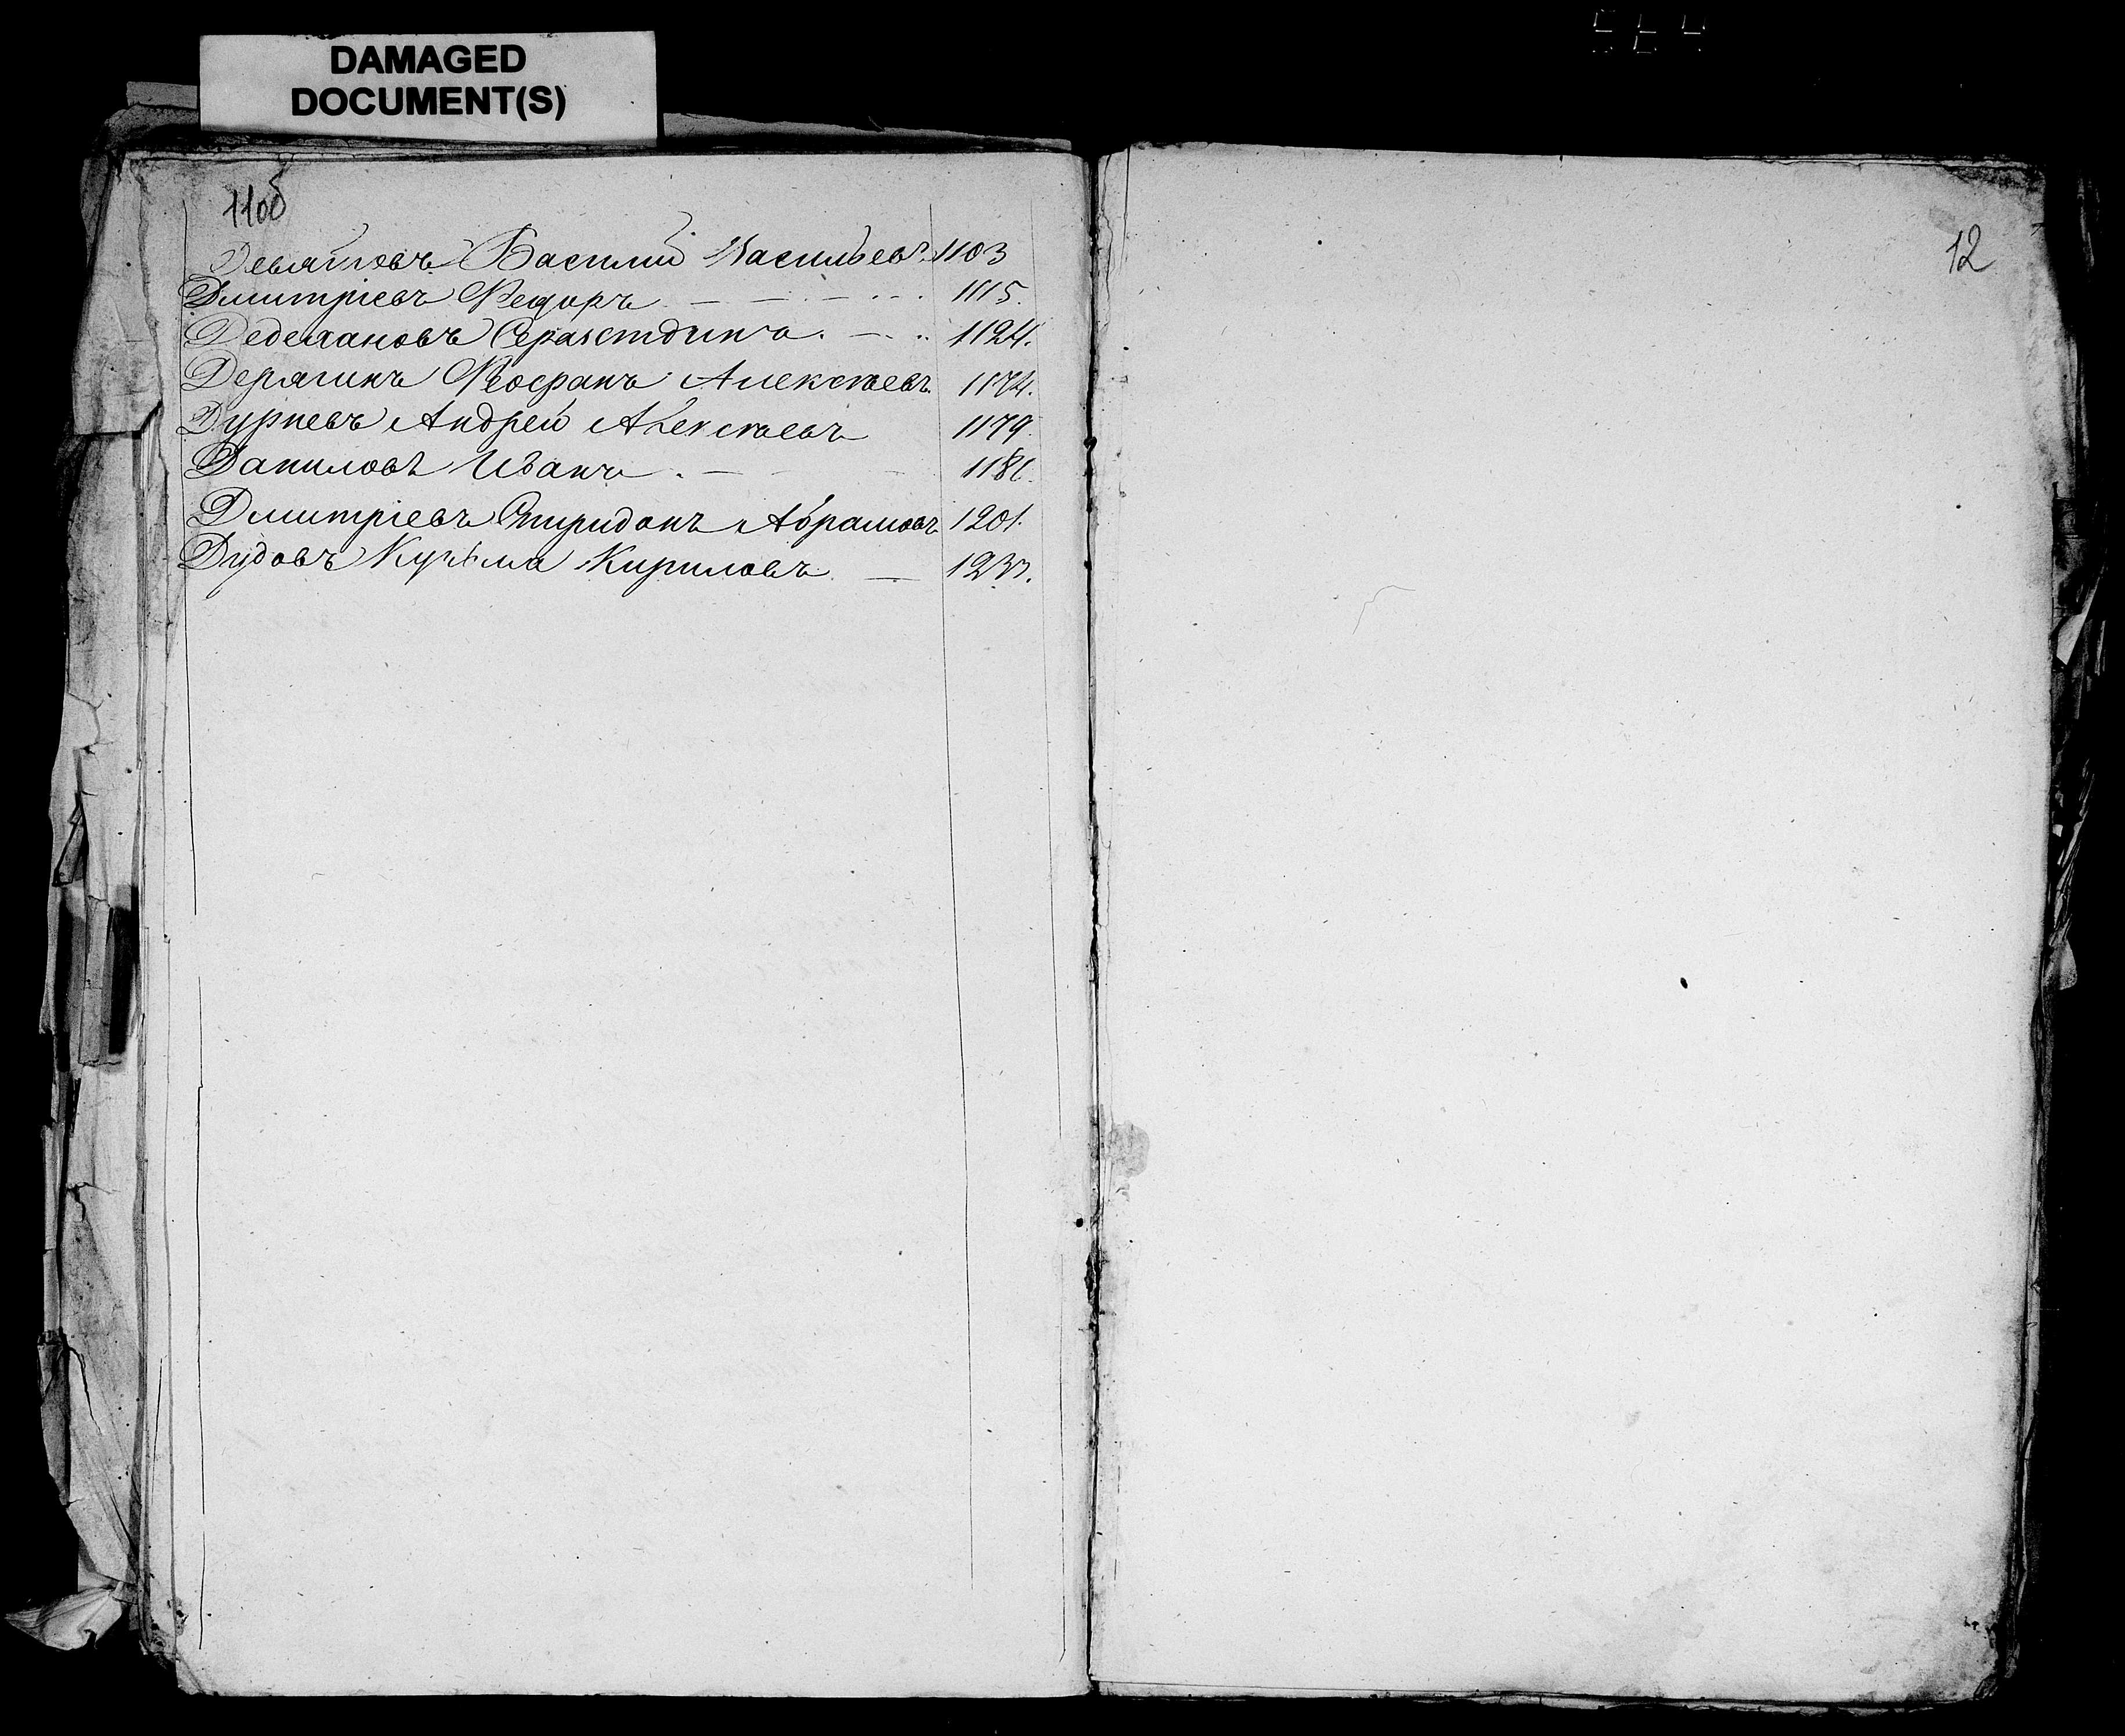 DAMAGED
DOCUMENT(S)
1100
12
Девятовъ Василий Васильев. 1103
Дмитріевъ Ѳедоръ 1115.
Деделановъ 1124.
Дерягинъ Ѳеофанъ Алексѣевъ. 1174.
Дурневъ Андрей Алексѣевъ 1179.
Даниловъ Иванъ
Дмитріевъ Спиридонъ Абрамовъ 1201.
Дудовъ Кузьма Кириловъ.